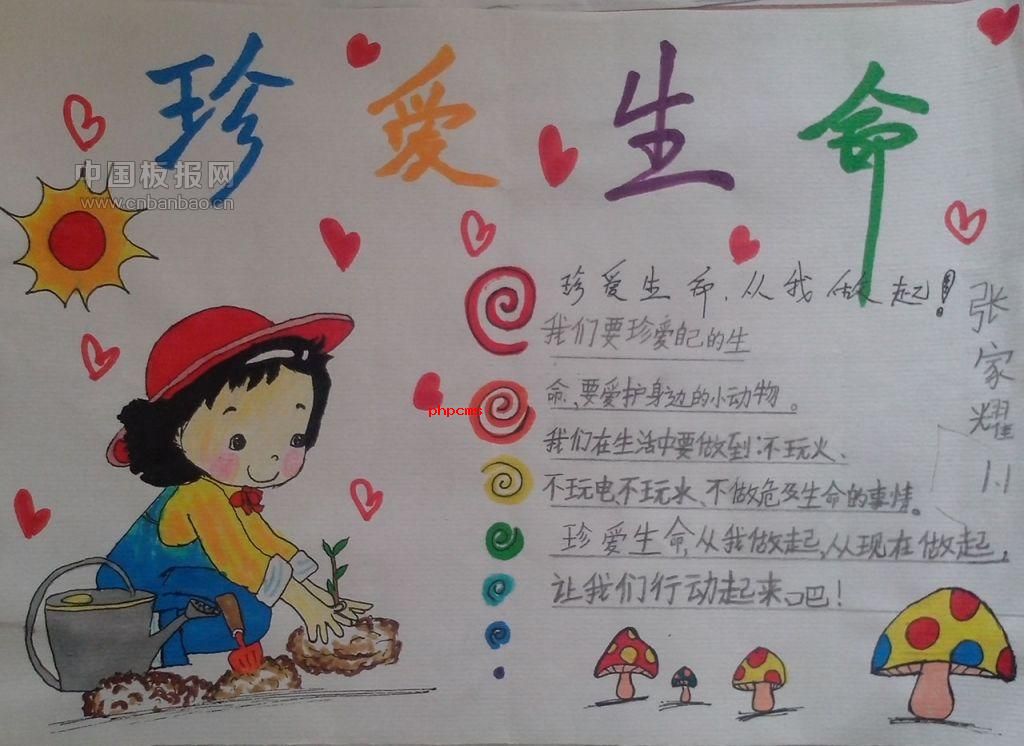 珍爱生命
中国板报网
www.cnbanbao.cn
珍爱生命,从我做起!
我们要珍爱自己的生
命,要爱护身边的小动物。
phpcms
我们在生活中要做到:不玩火、
不玩电不玩水、不做危及生命的事情。
珍爱生命,从我做起,从现在做起,
让我们行动起来吧!
张家耀 1.1